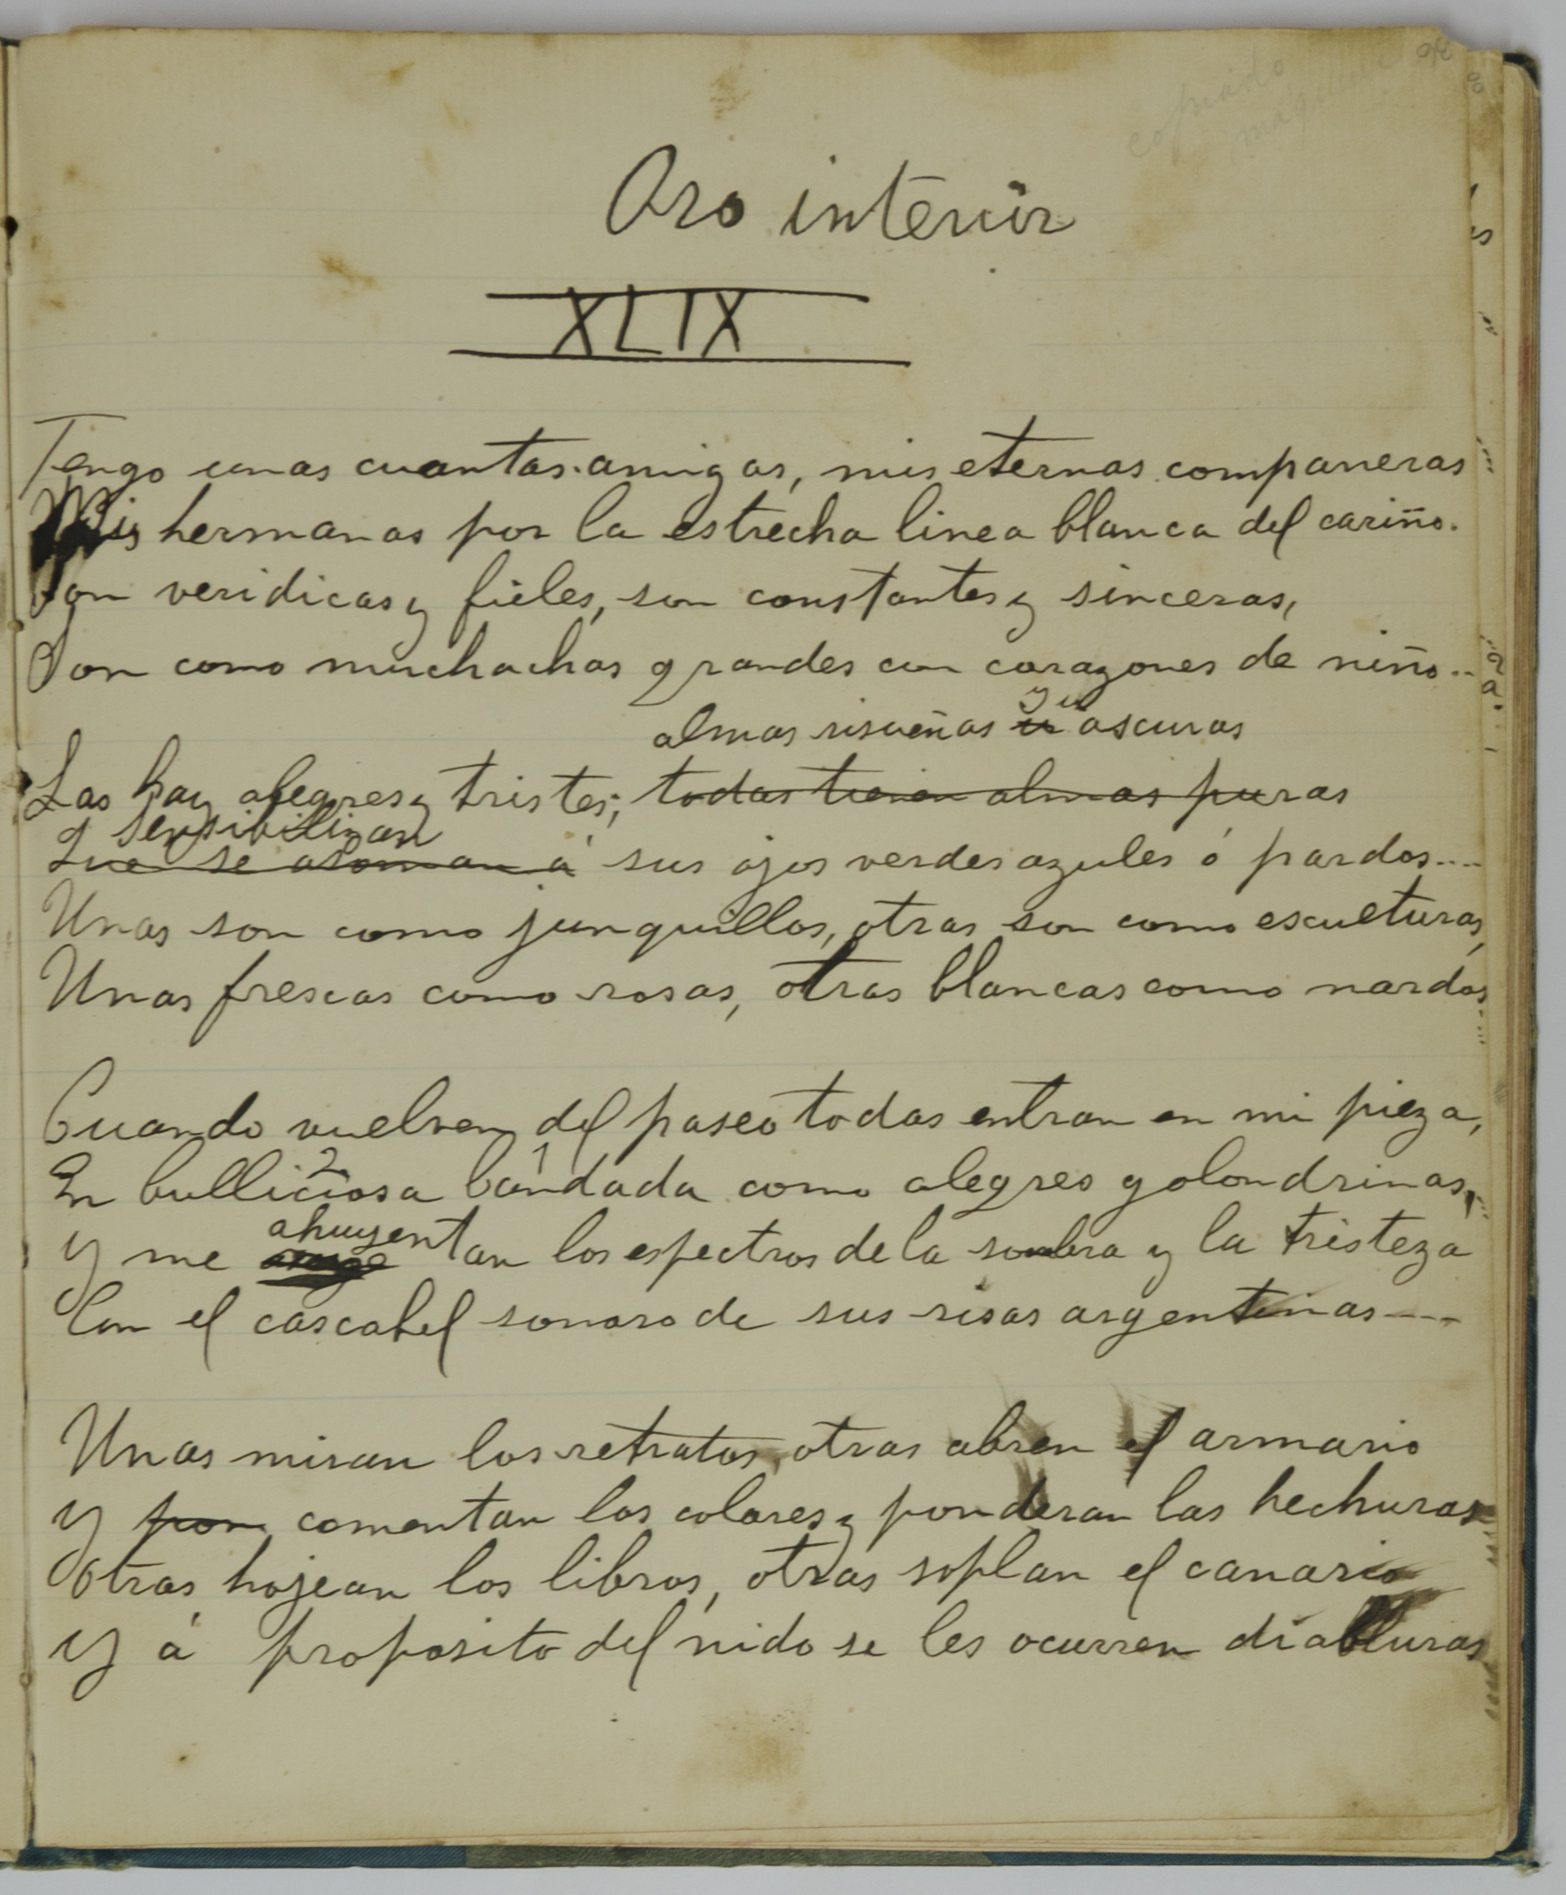 copiado
maquina
Oro interior
XLIX
Tengo unas cuantas amigas, mis eternas compañeras
Mis hermanas por la estrecha linea blanca del cariño.
Son veridicas y fieles, son constantes y sinceras,
Son como muchachas grandes con corazones de niño...
almas risueñas y oscuras
Las hay alegres y tristes; todas tienen almas puras
sensibilizan
Que se asoman á sus ojos verdes azules ó pardos....
Unas son como junquillos, otras son como esculturas,
Unas frescas como rosas, otras blancas como nardos...
Cuando vuelven del paseo todas entran en mi pieza,
2 1
En bulliciosa bandada como alegres golondrinas,
ahuyentan
Y me los espectros de la sombra y la tristeza
Con el cascabel sonoro de sus risas argentinas....
Unas miran los retratos, otras abren el armario
Y pon comentan los colores y ponderan las hechuras
Otras hojean los libros, otras soplan el canario
Y á proposito del nido se les ocurren diabluras